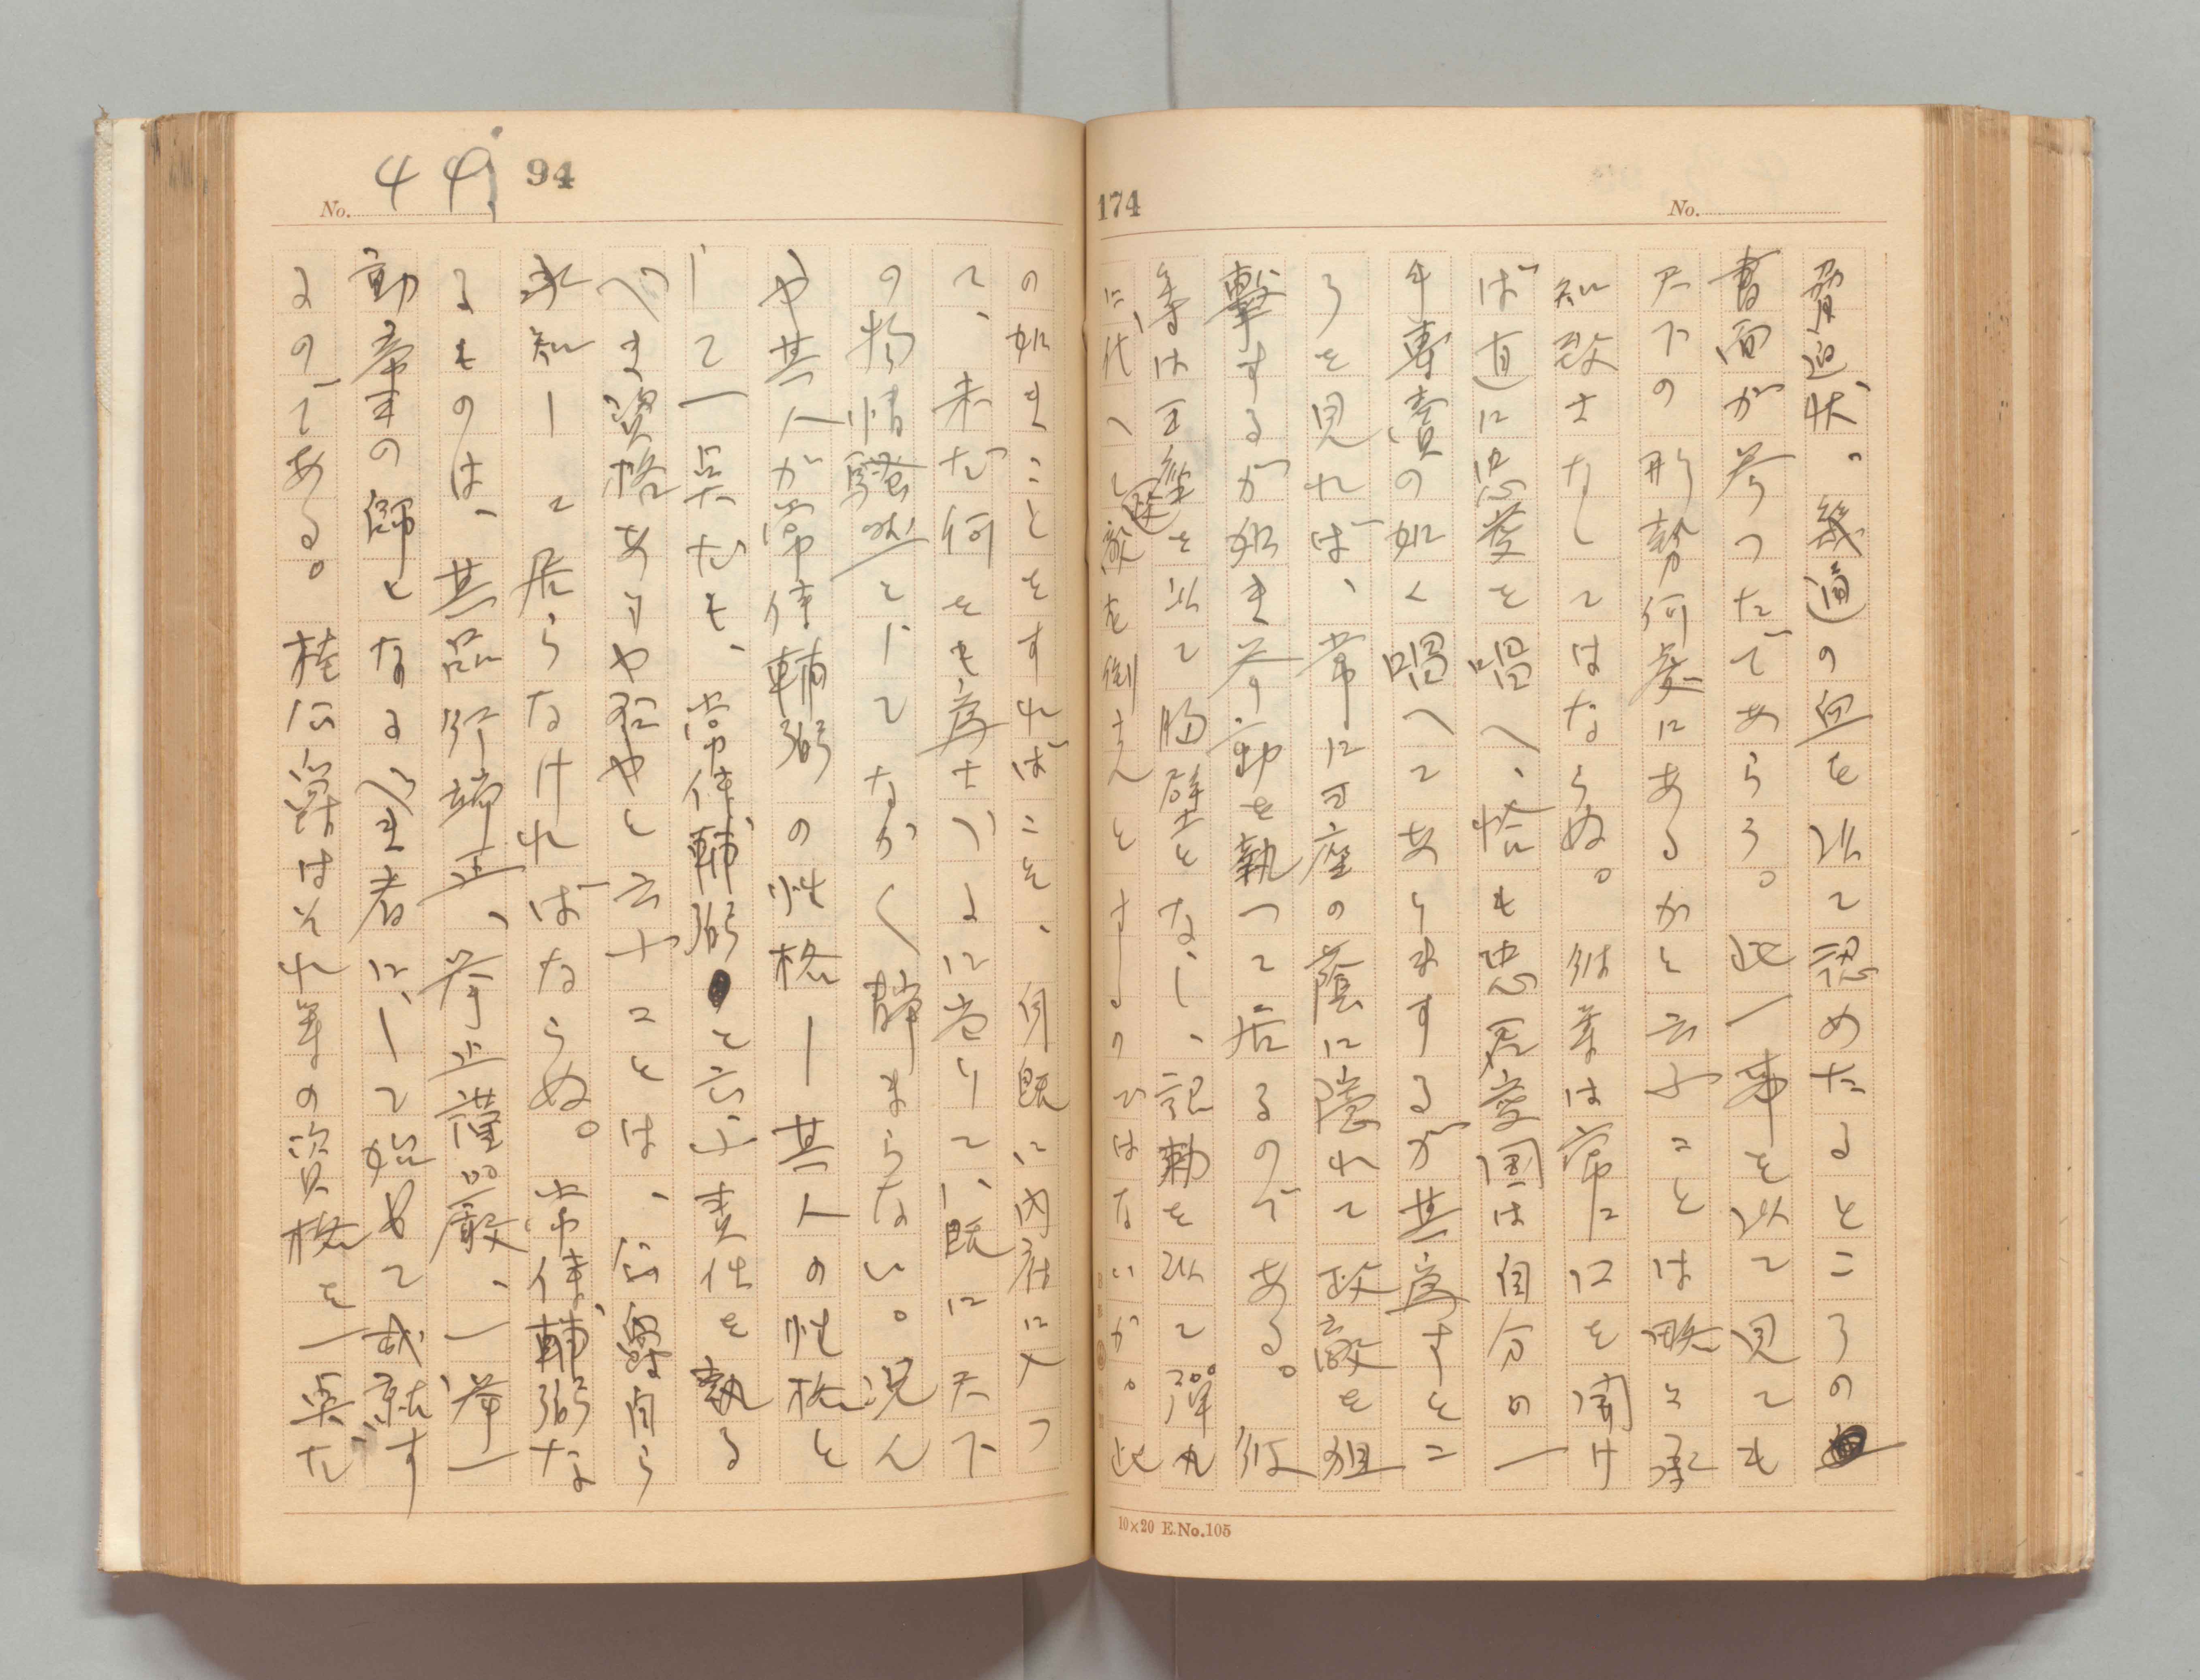 174
No.
脅迫状、幾通の血を以て認めたるところの
書面が参つたであらう。此一事を以て見ても
天下の形勢何処にあるかと云ふことは略ぼ承
知致さなくてはならぬ。彼等は常に口を開け
ば直に忠愛を唱へ、恰も忠君愛国は自分の一
手専売の如く唱へてありまするが其為すとこ
ろを見れば、常に玉座の蔭に隠れて政敵を狙
撃するが如き挙動を執つて居るのである。彼
等は玉座を以て胸壁となし、詔勅を以て弾丸
に代へて政敵を倒さんとするのではないか。此
10×20 E.No.105
No. 449
94
の如きことをすればこそ、身既に内府に入つ
て、未だ何をも為さゞるに当りて、既に天下
の物情騒然としてなかく静まらない。況ん
や其人が常侍輔弼の性格――其人の性格と
して一点だも、常侍輔弼と云ふ責任を執る
べき資格ありや否やと云ふことは、公爵自ら
承知して居らなければならぬ。常侍輔弼な
るものは、其品行端正、挙止謹厳、一挙一
動帝王の師となる可き者にして始めて成就す
るのである。桂公爵はそれ等の資格を一点だ